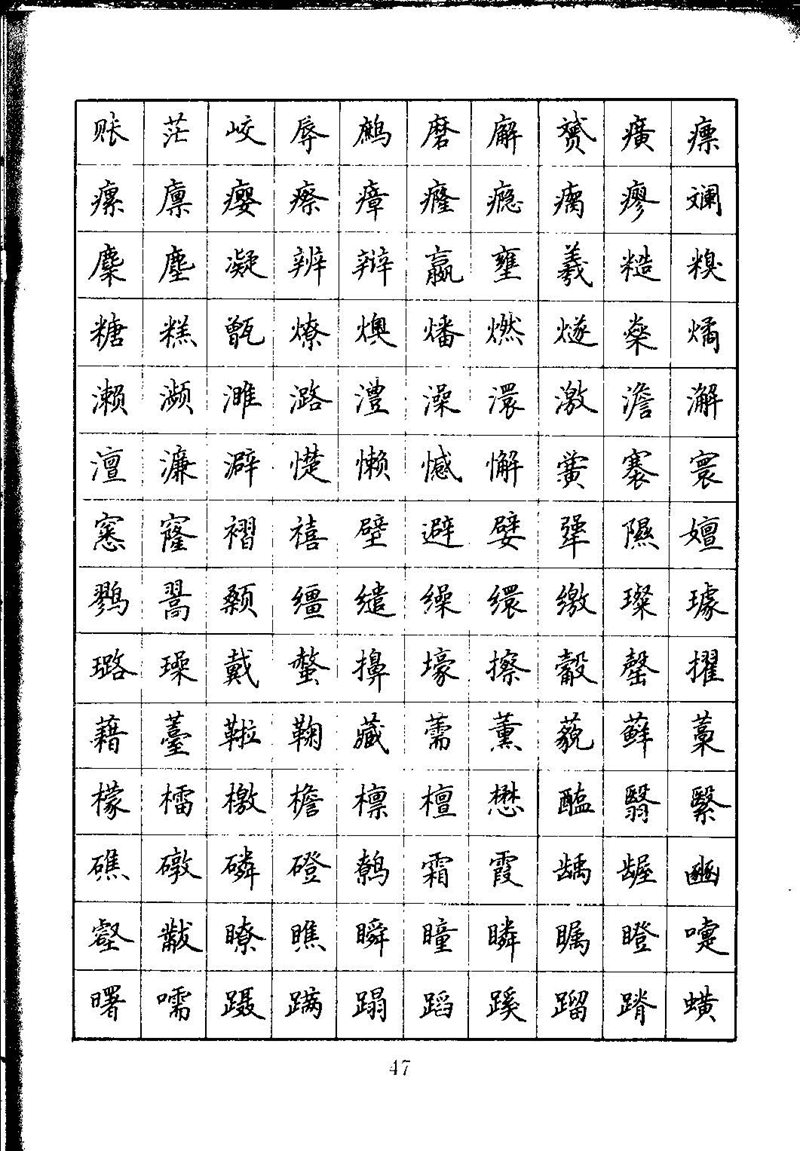 账茫峧辱鹧磨廨赟癀瘭
瘰廪瘿瘵瘴癃瘾瘸瘳斓
麇麈凝辨辩嬴壅羲糙糗
糖糕甑燎燠燔燃燧燊燏
濑濒濉潞澧澡澴激澹澥
澶濂澼憷懒憾懈黉褰寰
窸窿褶禧壁避嬖犟隰嬗
鹨翯颡缰缱缲缳缴璨璩
璐璪戴螫擤壕擦觳罄擢
藉薹鞡鞠藏薷薰藐藓藁
檬檑檄檐檩檀懋醢翳繄
礁礅磷磴鹩霜霞龋龌豳
壑黻瞭瞧瞬瞳瞵瞩瞪嚏
曙嚅蹑蹒蹋蹈蹊蹓蹐蟥
47